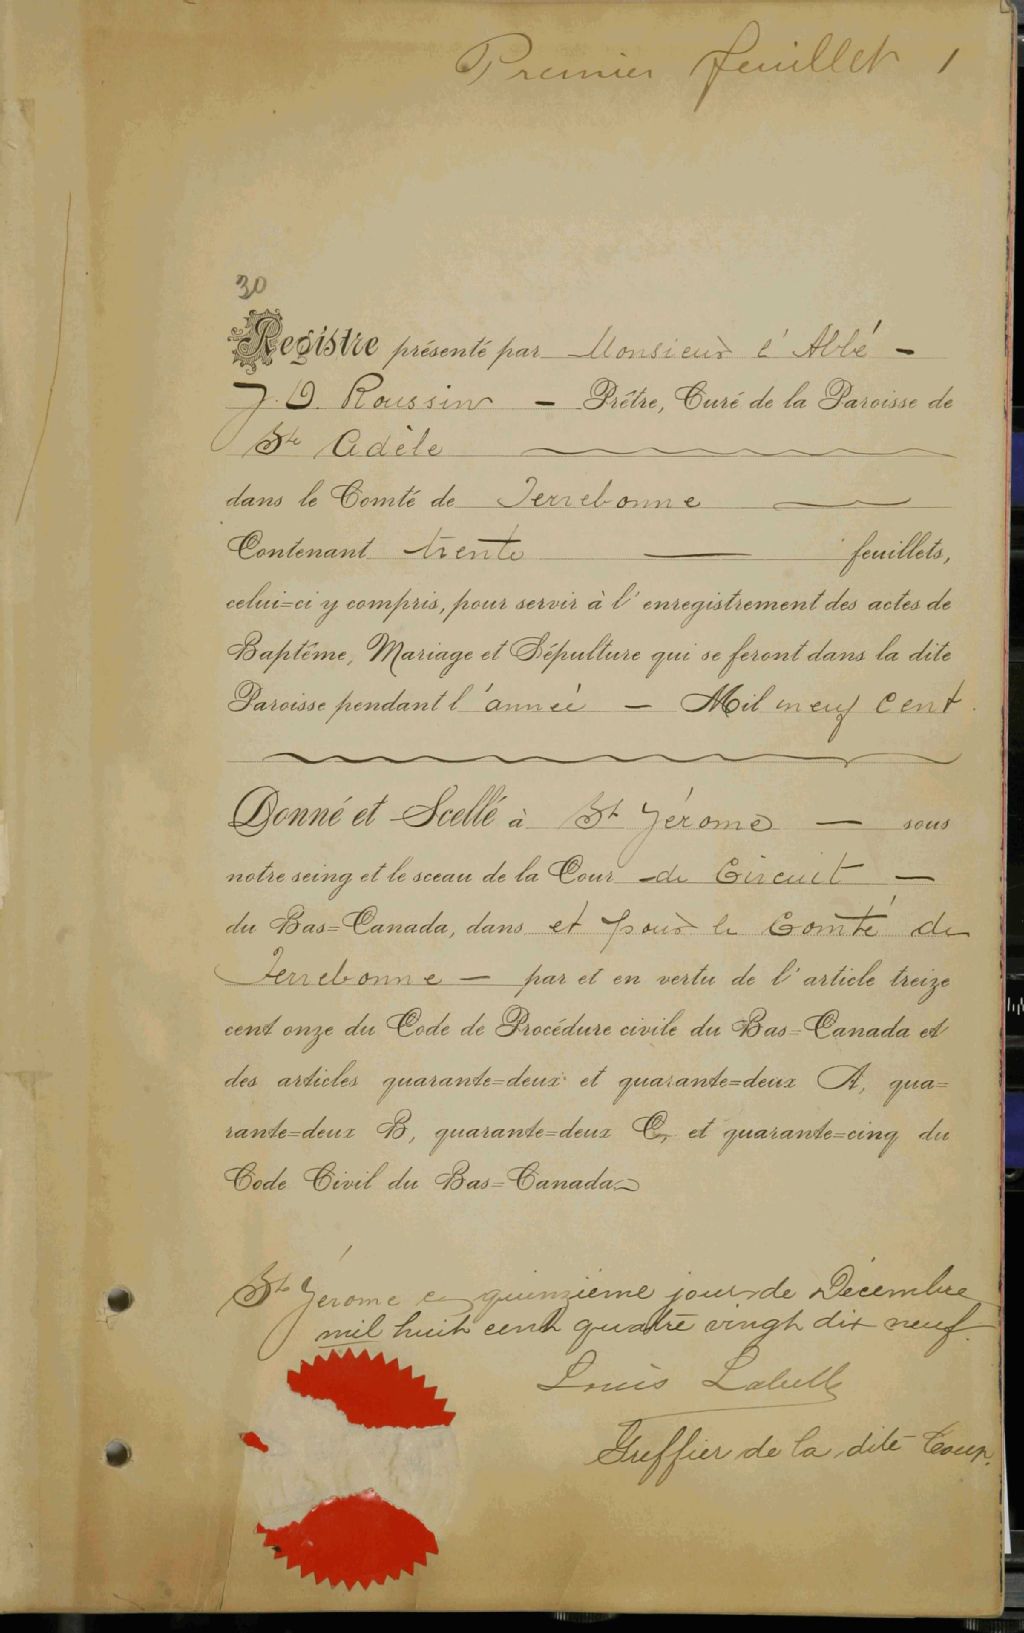 Premier feuillet 1
30
Registre présenté par Monsieur l'Abbé -
J. O. Roussin - Prêtre, Curé de la Paroisse de
Ste Adèle
dans le Comté de Terrebonne
Contenant trente feuillets,
celui=ci y compris, pour servir à l'enregistrement des actes de
Baptême, Mariage et Sépulture qui se feront dans la dite
Paroisse pendant l'année - Mil neuf cent
Donné et Scellé à St Jérome - sous
notre seing et le sceau de la Cour de Circuit -
du Bas=Canada, dans et pour le Comté de
Terrebonne - par et en vertu de l'article treize
cent onze du Code de Procédure civile du Bas=Canada et
des articles quarante=deux et quarante=deux A, qua=
rante=deux B, quarante=deux C, et quarante=cinq du
Code Civil du Bas=Canada
St Jérome ce quinzième jour de Décembre
mil huit cent quatre vingt dix neuf.
Louis Labelle
Greffier de la dite Cour.